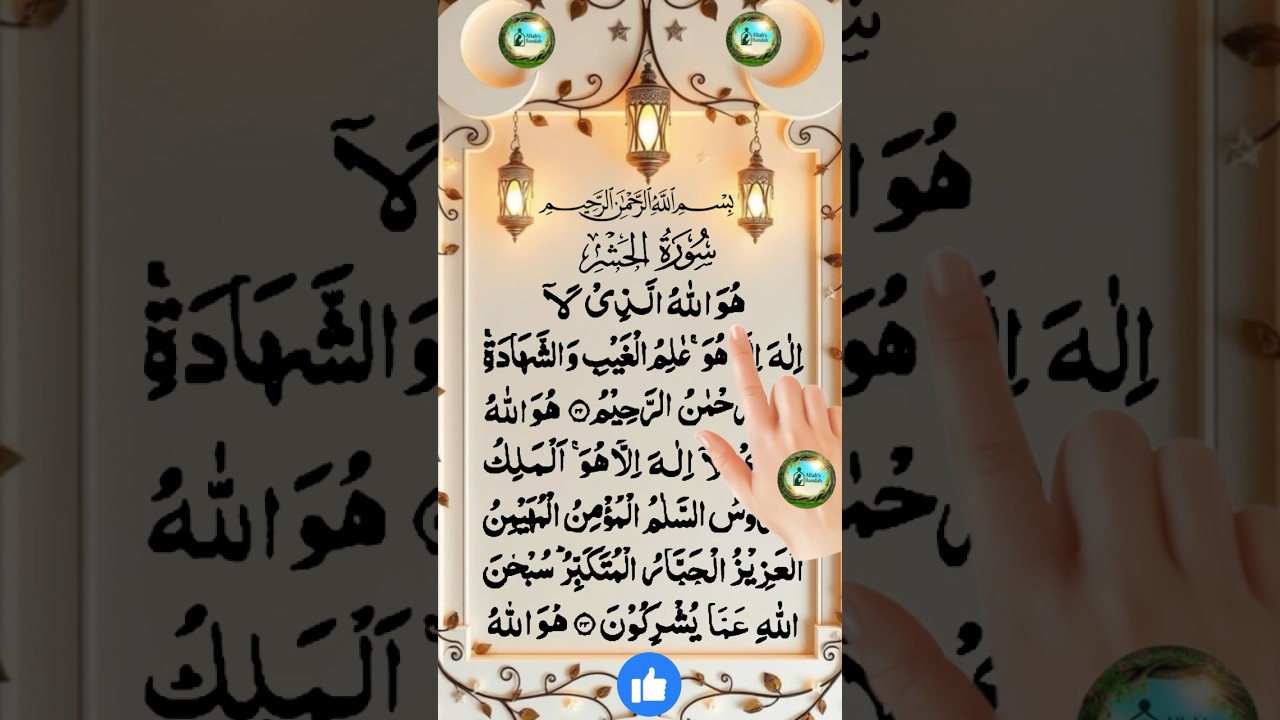 Allah's Bandah
Allah's Bandah
بِسْمِ اللَّهِ الرَّحْمَٰنِ الرَّحِيمِ
سُورَةُ الحَشْرِ
هُوَ اللّٰهُ الَّذِىْ لَاۤ
اِلٰهَ هُوَ ۚ عٰلِمُ الْغَيْبِ وَالشَّهَادَةِ ۚ
الرَّحِيْمُ ﴿۲۲﴾ هُوَ اللّٰهُ
اِلٰهَ اِلَّا هُوَ ۚ اَلْمَلِكُ
السَّلٰمُ الْمُؤْمِنُ الْمُهَيْمِنُ
الْعَزِيْزُ الْجَبَّارُ الْمُتَكَبِّرُ ؕ سُبْحٰنَ
اللّٰهِ عَمَّا يُشْرِكُوْنَ ﴿۲۳﴾ هُوَ اللّٰهُ
Allah's Bandah